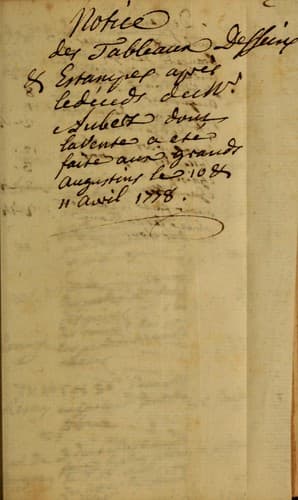 Notice
des Tableaux Desseins
& Estampes après
le décès de Mr.
Aubert dont
la vente a eté
faite aux grands
augustins le 10 &
11 avril 1778.